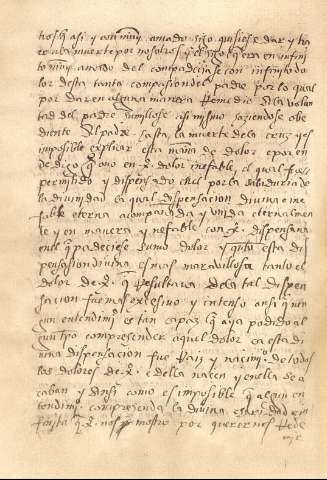 tros q asi y como muy amado hijo quisiese dar y tra
er a la muerte por nosotros y el hijo q era en infini
to muy amado del compadeciase con infinito do
lor desta tanta compasion del padre por lo qual
por dar en alguna manera Remedio a la volun
tad del padre humillose asi mismo haziendose obe
diente al padre hasta la muerte de la cruz y es
imposible explicar esta mana de dolor e por en
de digo q ouo en x̄. dolor inefable, el qual fue
permitido y dispensado en el por la sabiduria de
la diuinidad la qual dispensacion diuina e ine
fable eterna acompañada y vnida eternalmen
te y en manera ynefable con x̄. dispensaua
ente q padeciese sumo dolor y quanto esta di
spensasion diuina es mas marauillosa tanto el
dolor de x̄. q Resultaua de la tal dispen
sacion fue mas excesiuo y intenso ansi q nen
gun entendimi.º es tan capaz q aya podido al
gun tpo comprehender aquel dolor ca esta di
uina dispensacion fue Raiz y nacimi.º de todos
los dolores de x̄. e della nacen y en ella se a
caban y ansi como es imposible q algun en
tendimi.º comprehenda la diuina charidad in
finita q x̄. nos mostro por querernos Rede
mir